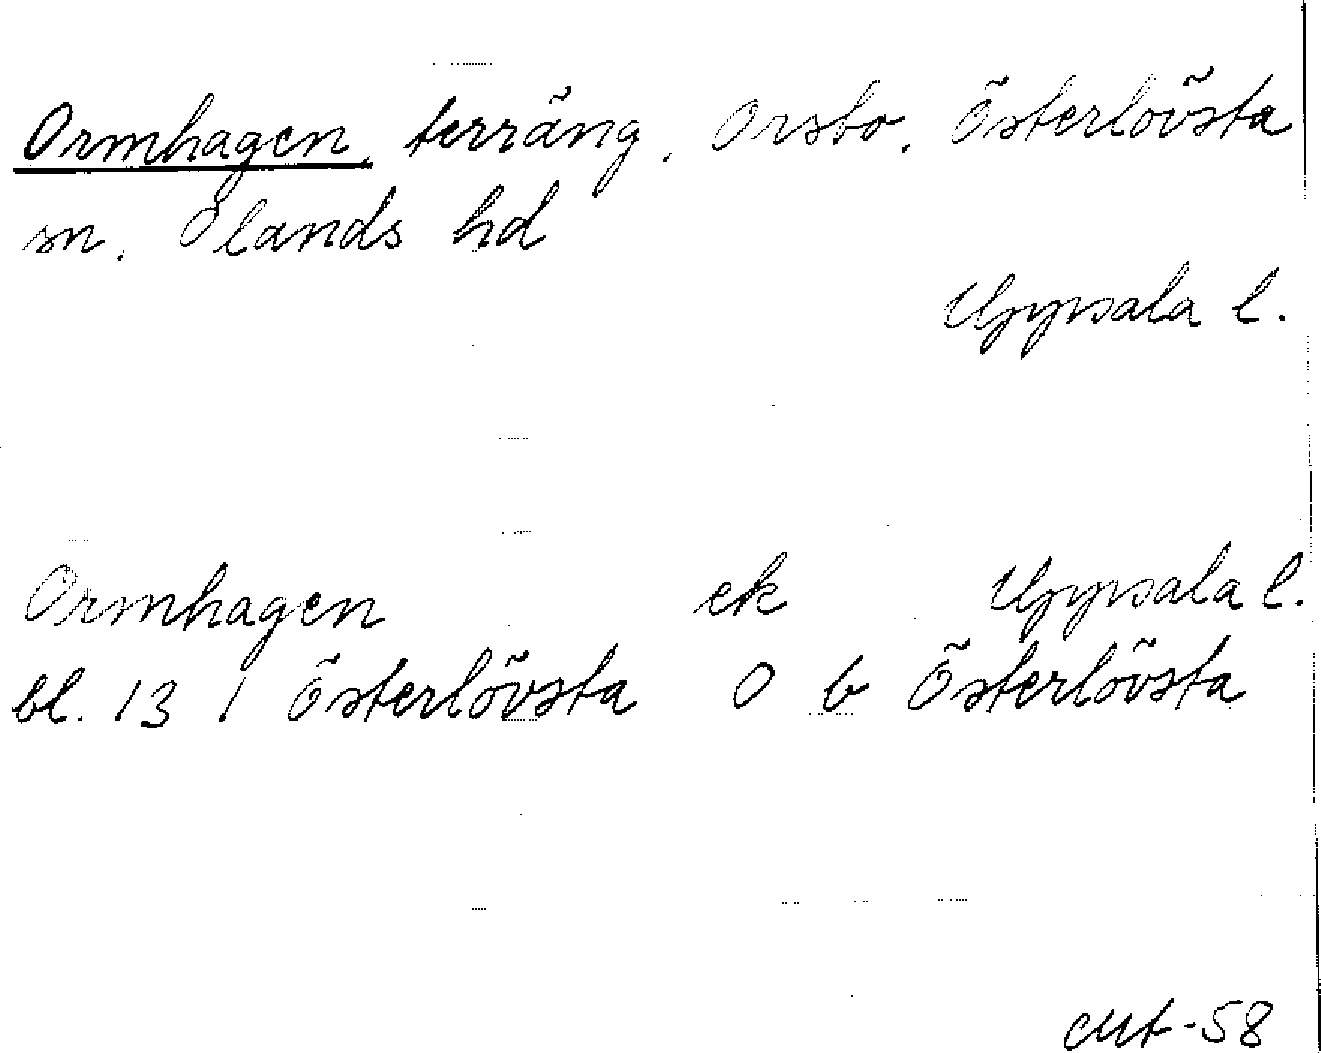 Ormhagen, terräng, Orsbo, Österlövsta
sn, Olands hd
Uppsala l.
Ormhagen ek Uppsala l.
bl. 13 I Österlövsta O b Österlövsta
-58